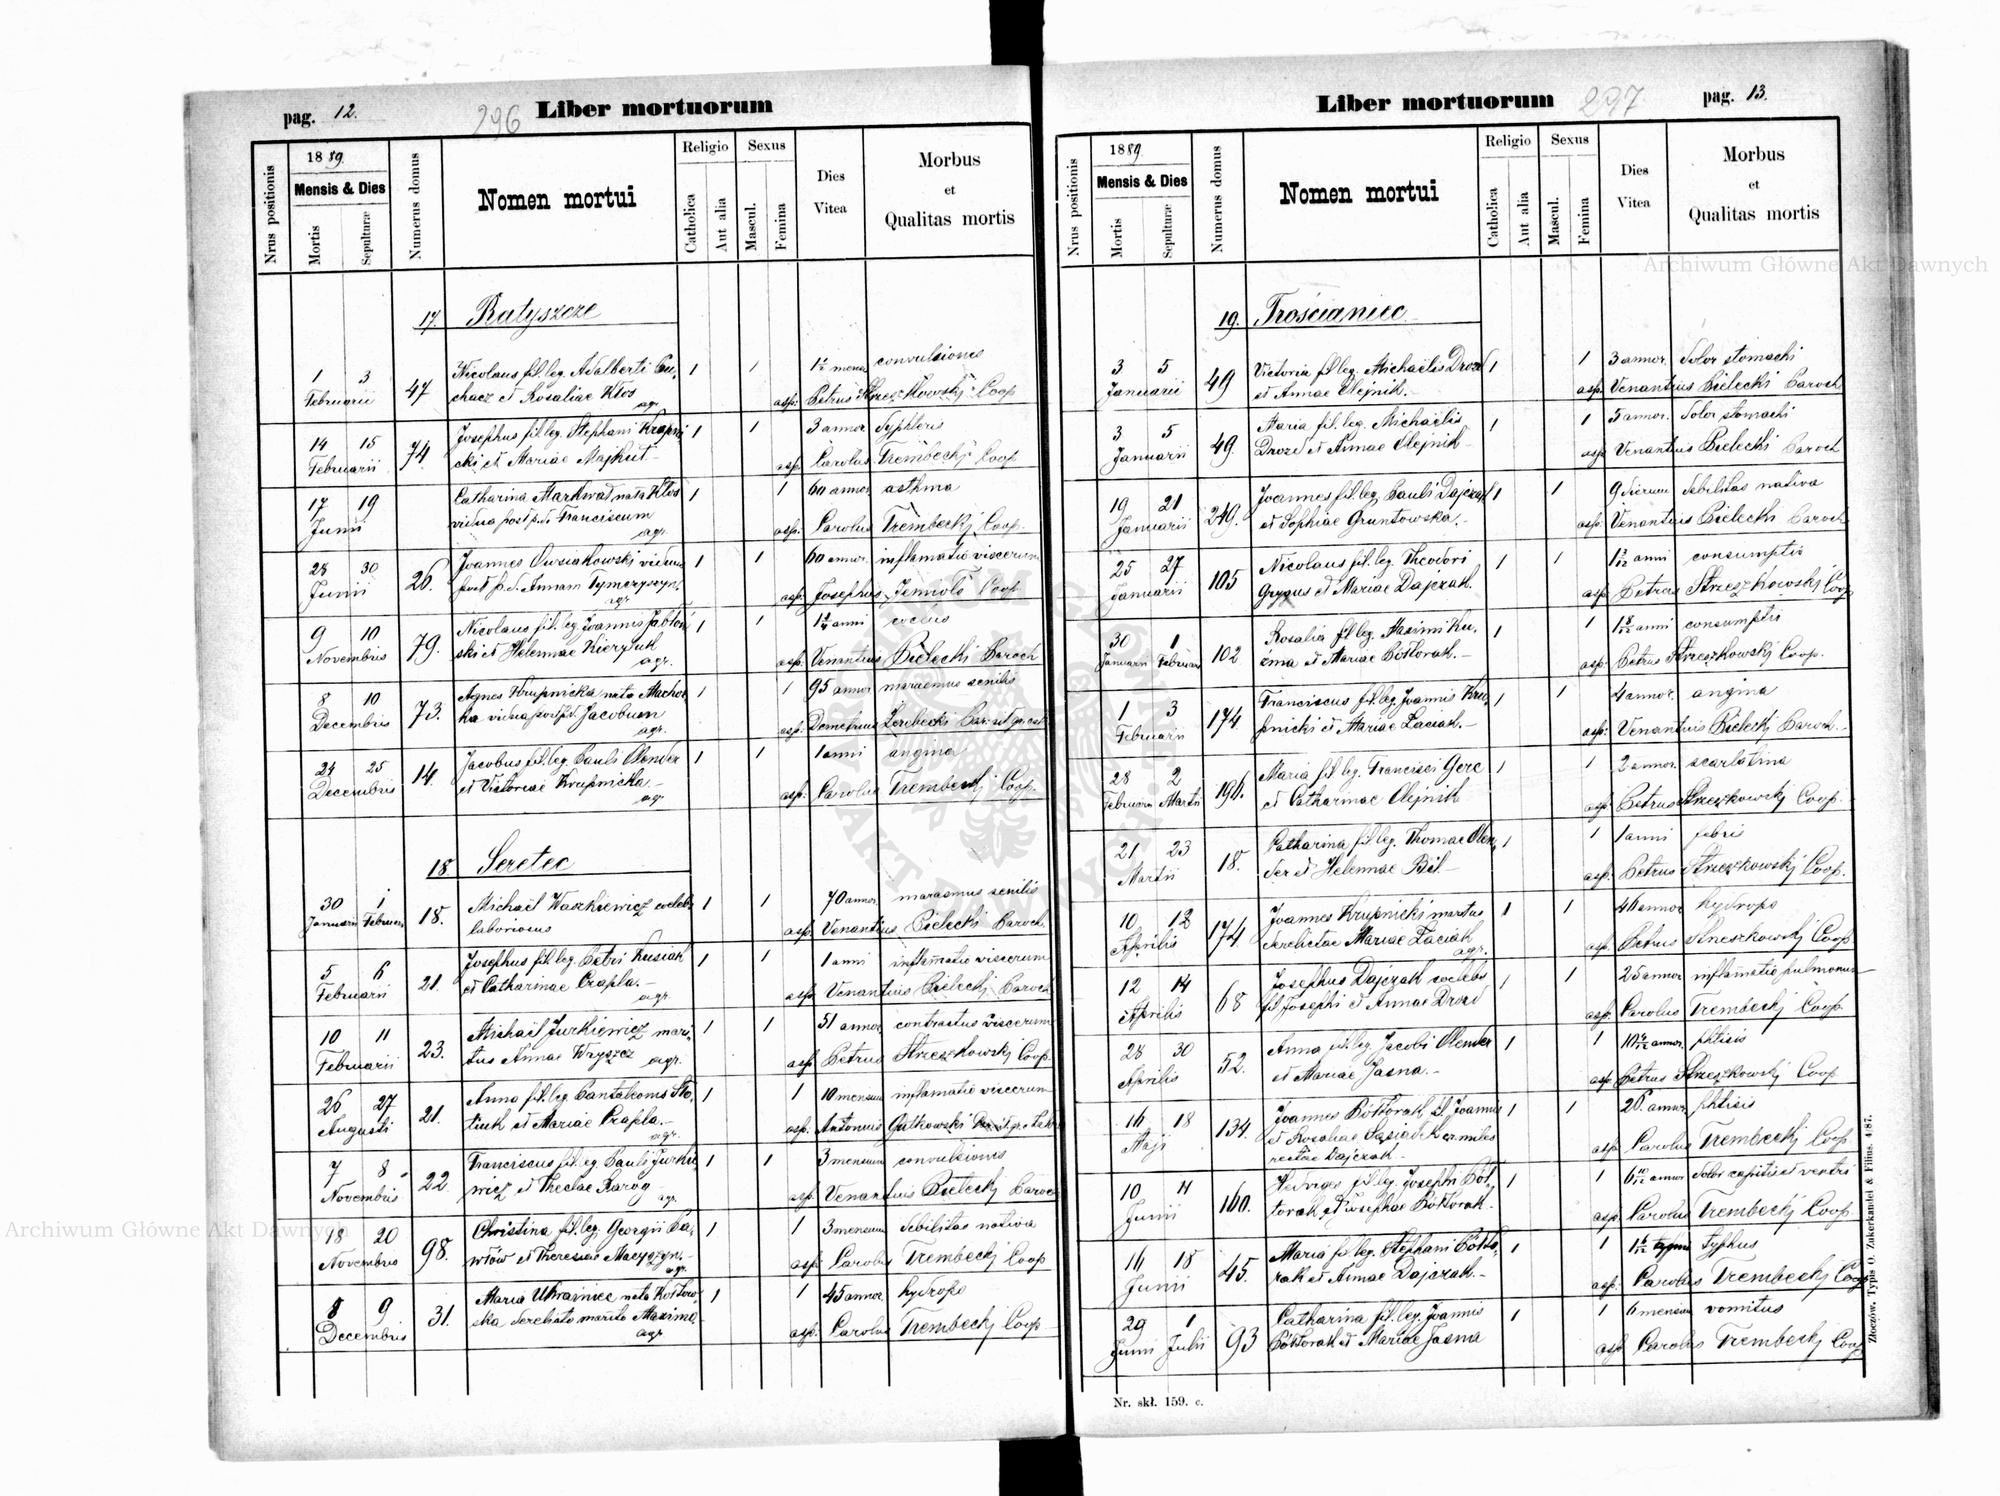 pag. 12.
296
Liber mortuorum
Nrus positionis
1889.
Mensis & Dies
Mortis
Sepulturæ
Numerus domus
Nomen mortui
Religio
Catholica
Aut alia
Sexus
Mascul.
Femina
Dies
Vitea
Morbus
et
Qualitas mortis
17. Ratyszcze
1 3 Februarii 47 Nicolaus fil. leg. Adalberti 1 1 mens convulsiones
et Rosaliae Kłos agr. asp: Petrus Strzeszkowski Coop
14 15 Februarii 74. Josephus fil. leg. Stephani Krupni 1 1 3 annor
cki et Mariae Majkut asp: Carolus Trembeckj Coop
17 19 Junii Catharina Markwat nata Kłos 1 1 60 annor asthma
vidua post p.d. Franciscum agr. asp: Carolus Trembeckj Coop.
28 30 Junii 26. Joannes viduus 1 1 60 annor inflamatio viscerum
post p.d. Annam agr. asp: Josephus Coop
9 10 Novembris 79. Nicolaus fil. leg. Joannis Jabłoń 1 1 anni
ski et Helennae agr. asp: Venantius Bielecki Paroch
8 10 Decembris 73. Agnes Krupnicka nata 1 1 95 annor marasmus senilis
ka vidua post p.d. Jacobum agr. asp: Demetrius
24 25 Decembris 14. Jacobus fil. leg. Pauli Olender 1 1 1 anni angina
et Victoriae Krupnicka agr. asp: Carolus Trembeckj Coop.
18. Seretec
30 1 Januarii Februarii 18. Michaël Waszkiewicz coelebs 1 1 70 annor. marasmus senilis
laboriosus asp: Venantius Bielecki Paroch.
5 6 Februarii 21. Josephus fil. leg. Petri Kusiak 1 1 1 anni inflamatio viscerum
et Catharinae Czapla.- agr. asp: Venantius Bieleckj Paroch
10 11 Februarii 23. Michaël Jurkiewicz mari- 1 1 51 annor contractus viscerum
tus Annae agr. asp: Petrus Strzeszkowskj Coop
26 27 Augusti 21. Anna fil. leg. Pantaleonis 1 1 10 mensium inflamatio viscerum
et Mariae Czapla.- agr. asp: Antonius Gutkowski
7 8 Novembris 22. Franciscus fil. leg. Pauli Jurkie 1 1 3 mensium convulsiones
wicz et Theclae Karog agr. asp: Venantius Bieleckj Paroch
18 20 Novembris 98. Christina fil. leg. Georgii Pa- 1 1 3 mensium debilitas nativa
włów et Theresiae agr. asp: Carolus Trembeckj Coop
8 9 Decembris 31. Maria Ukrainiec nata 1 1 45 annor hydrops
ska derelicto marito Maximo agr asp: Carolus Trembeckj Coop
Liber mortuorum
297
pag. 13.
Nrus positionis
1889.
Mensis & Dies
Mortis
Sepulturæ
Numerus domus
Nomen mortui
Religio
Catholica
Aut alia
Sexus
Mascul.
Femina
Dies
Vitea
Morbus
et
Qualitas mortis
19. Trościaniec
3 5 Januarii 49 Victoria fil. leg. Michaëlis Drozd 1 1 3 annor. dolor stomachi
et Annae Olejnik.- asp: Venantius Bielecki Paroch
3 5 Januarii 49. Maria fil. leg. Michaëlis 1 1 5 annor. dolor stomachi
Drozd et Annae Olejnik asp Venantius Bielecki Paroch
19 21 Januarii 249. Joannes fil. leg. Pauli Dajczak 1 1 9 dierum debilitas nativa
et Sophiae Gruntowska.- asp: Venantius Bielecki Paroch
25 27 Januarii 105 Nicolaus fil. leg. Theodori 1 1 anni consumptio
et Mariae Dajczak. asp: Petrus Strzeszkowskj Coop
30 1 Januarii Februarii 102 Rosalia fil. leg. Maximi Ku- 1 1 1 8/12 anni consumptio
źma et Mariae Półtorak.- asp: Petrus Strzeszkowskj Coop.
1 3 Februarii 174 Franciscus fil. leg. Joannis Kru- 1 1 4 annor. angina
pnicki et Mariae Zaciak.- asp: Venantius Bieleckj Paroch.-
28 2 Februarii Martii 196. Maria fil. leg. Francisci Gerc 1 1 2 annor. scarlatina
et Catharinae Olejnik asp: Petrus Strzeszkowskj Coop.
21 23 Martii 18. Catharina fil. leg. Thomae Olen- 1 1 1 anni febris
der et Helennae Bil.- asp: Petrus Strzeszkowskj Coop.
10 12 Aprilis 174 Joannes Krupnicki maritus 1 1 46 annor hydrops
derelictae Mariae Zaciak agr. asp: Petrus Strzeszkowskj Coop
12 14 Aprilis 68 Josephus Dajczak coelebs 1 1 25 annor inflamatio pulmonum
fil Josephi et Annae Drozd asp: Carolus Trembeckj Coop.
28 30 Aprilis 52. Anna fil. leg. Jacobi Olender 1 1 annor. phtisis
et Mariae Jasna.- asp Petrus Strzeszkowskj Coop
16 18 Maji 134. Joannes Półtorak fil Joannis 1 1 26. annor phtisis
et Rosaliae miles
recte Dajczak.- asp: Carolus Trembeckj Coop
10 11 Junii 160. Hedviges fil. leg. Josephi Pół- 1 1 6 10/12 annor dolor capitis et ventri
torak et Josephae Półtorak.- asp: Carolus Trembeckj Coop.
16 18 Junii 45. Maria fil. leg. Stephani Półto- 1 1 typhus
rak et Annae Dajczak.- asp: Carolus Trembeckj Coop
29 1 Junii Julii 93 Catharina fil. leg. Joannis 1 1 6 mensium vomitus
Półtorak et Mariae Jasna asp Carolus Trembeckj Coop
Nr. skł. 159. c.
Złoczów. Typis O. Zukerkandel & Filius. 4/87.
Archiwum Główne Akt Dawnych
Archiwum Główne Akt Dawnych
ARCHIWUM GŁÓWNE AKT DAWNYCH